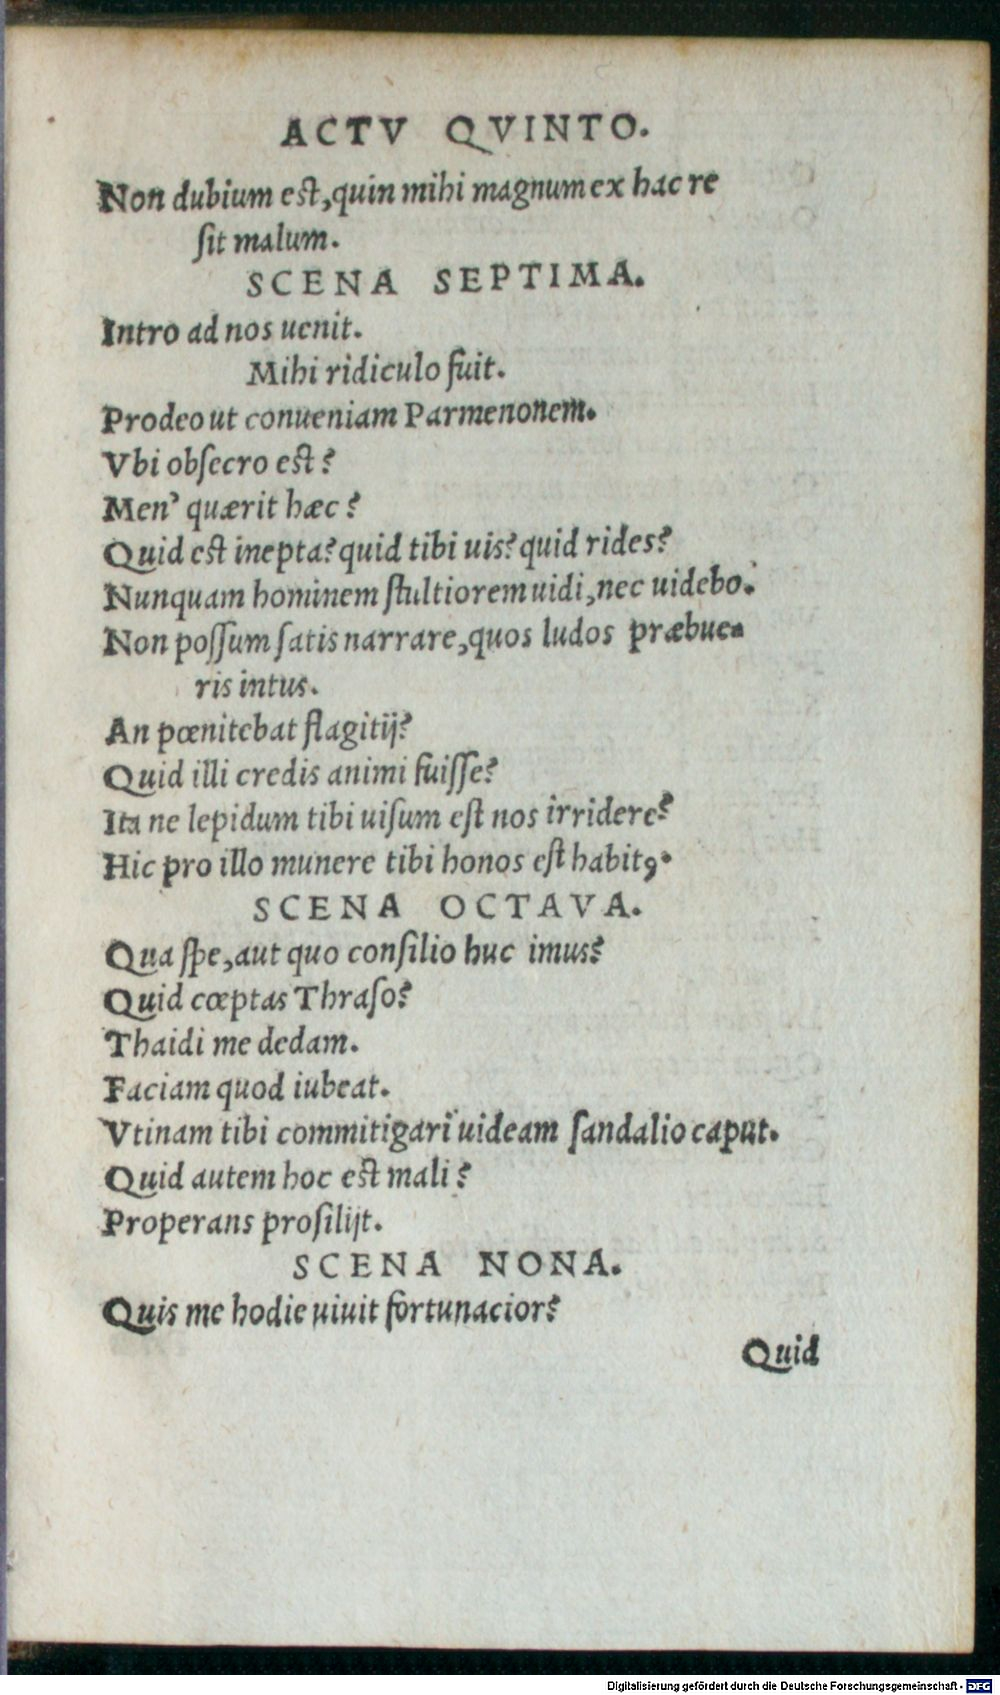 ACTV QVINTO.
Non dubium est, quin mihi magnum ex hac re
sit malum.
SCENA SEPTIMA.
Intro ad nos uenit.
Mihi ridiculo fuit.
Prodeo ut conueniam Parmenonem.
Vbi obsecro est?
Men' quærit hæc?
Quid est inepta? quid tibi uis? quid rides?
Nunquam hominem stultiorem uidi, nec uidebo.
Non possum satis narrare, quos ludos præbue-
ris intus.
An pœnitebat flagitij?
Quid illi credis animi fuisse?
Ita ne lepidum tibi uisum est nos irridere?
Hic pro illo munere tibi honos est habitꝰ.
SCENA OCTAVA.
Qua spe, aut quo consilio huc imus?
Quid cœptas Thraso?
Thaidi me dedam.
Faciam quod iubeat.
Vtinam tibi commitigari uideam sandalio caput.
Quid autem hoc est mali?
Properans prosilijt.
SCENA NONA.
Quis me hodie uiuit fortunacior?
Quid
Digitalisierung gefördert durch die Deutsche Forschungsgemeinschaft - DFG